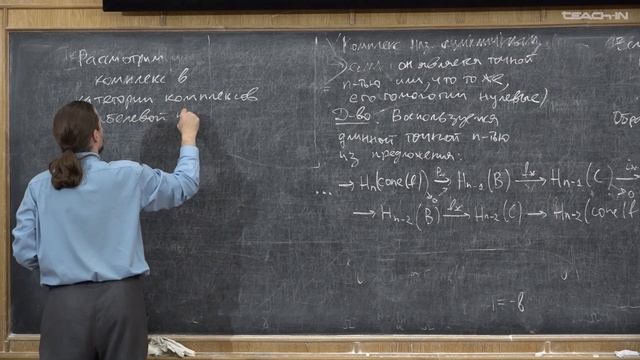 TEACH-IN
Рассмотрим
комплекс в
категории комплексов
абелевой
(Комплекс наз. ацикличным,
если он является точной
п-тью или, что то же,
его гомологии нулевые)
Д-во: Воспользуемся
длинной точной п-тью
из предложения:
... → Hn(cone(f)) → Hn-1(B) → Hn-1(C) →
→ Hn-2(B) → Hn-2(C) → Hn-2(cone(f
= -f